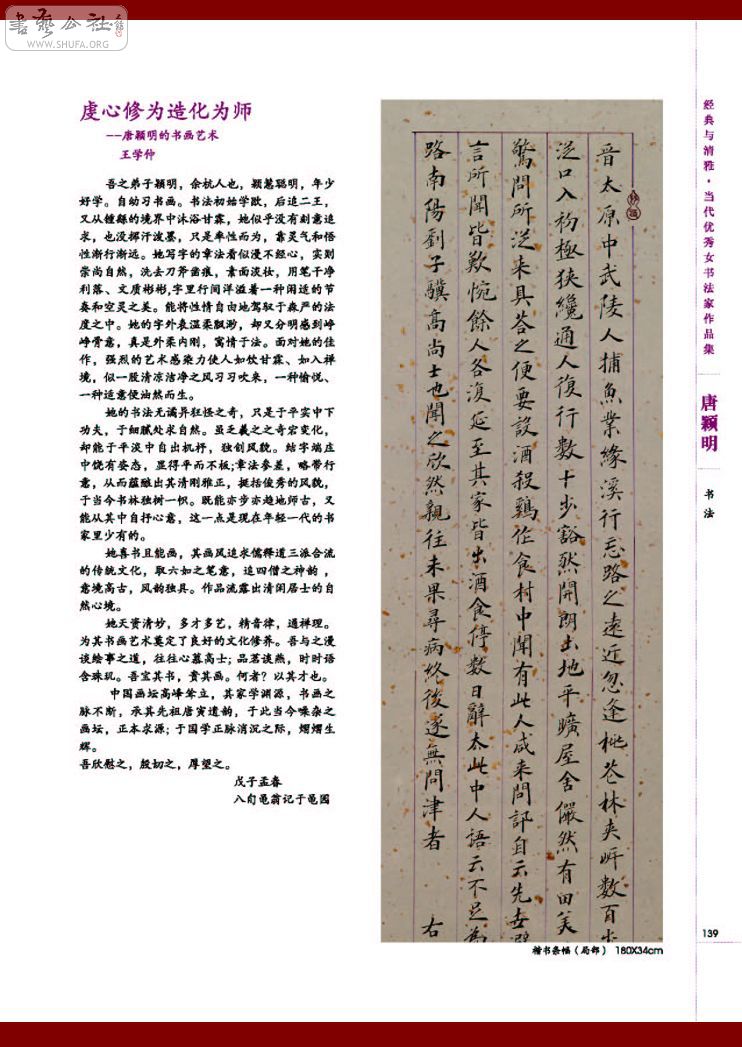 書藝公社
WWW.SHUFA.ORG
虔心修为造化为师
——唐颖明的书画艺术
王学仲
吾之弟子颖明，余杭人也，颖慧聪明，年少
好学。自幼习书画。书法初始学欧，后追二王，
又从锺繇的境界中沐浴甘霖，她似乎没有刻意追
求，也没挥汗泼墨，只是率性而为，靠灵气和悟
性渐行渐远。她写字的章法看似漫不经心，实则
崇尚自然，洗去刀斧凿痕，素面淡妆，用笔干净
利落、文质彬彬，字里行间洋溢着一种闲适的节
奏和空灵之美。能将性情自由地驾驭于森严的法
度之中。她的字外表温柔飘渺，却又分明感到峥
峥骨意，真是外柔内刚，寓情于法。面对她的佳
作，强烈的艺术感染力使人如饮甘霖、如入禅
境，似一股清凉洁净之风习习吹来，一种愉悦、
一种适意便油然而生。
她的书法无谲异狂怪之奇，只是于平实中下
功夫，于细腻处求自然。虽乏羲之之奇宏变化，
却能于平淡中自出机杼，独创风貌。结字端庄
中饶有姿态，显得平而不板；章法参差，略带行
意，从而蕴酿出其清刚雅正，挺括俊秀的风貌，
于当今书林独树一帜。既能亦步亦趋地师古，又
能从其中自抒心意，这一点是现在年轻一代的书
家里少有的。
她喜书且能画，其画风追求儒释道三派合流
的传统文化，取六如之笔意，追四僧之神韵，
意境高古，风韵独具。作品流露出清闲居士的自
然心境。
她天资清妙，多才多艺，精音律，通禅理。
为其书画艺术奠定了良好的文化修养。吾与之漫
谈绘事之道，往往心慕高士；品茗谈燕，时时语
含珠玑。吾宝其书，贵其画。何者？以其才也。
中国画坛高峰耸立，其家学渊源，书画之
脉不断，承其先祖唐寅遗韵，于此当今嘈杂之
画坛，正本求源；于国学正脉消沉之际，熠熠生
辉。
吾欣慰之，殷切之，厚望之。
戊子孟春
八旬黾翁记于黾园
晋太原中武陵人捕魚業緣溪行忘路之遠近忽逢桃花林夹岸数百步
從口入初極狭纔通人復行數十步豁然開朗土地平曠屋舍儼然有田美
驚問所從来具荅之便要設酒殺鷄作食村中聞有此人咸来問訊自云先世避
言所聞皆歎惋餘人各復延至其家皆出酒食停数日辭去此中人語云不足為
路南陽劉子驥髙尚士也聞之欣然親往未果尋病終後遂無問津者 右
楷书条幅（局部） 180X34cm
经典与清雅·当代优秀女书法家作品集
唐颖明
书法
139